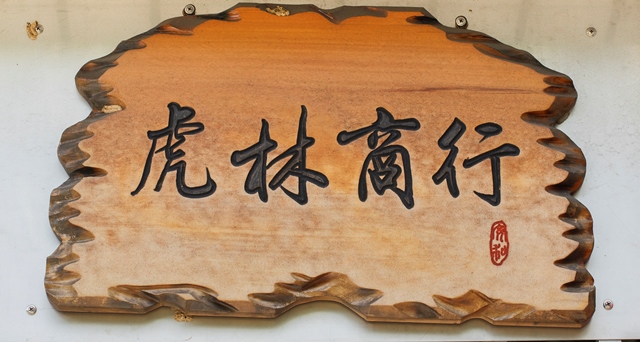 虎林商行